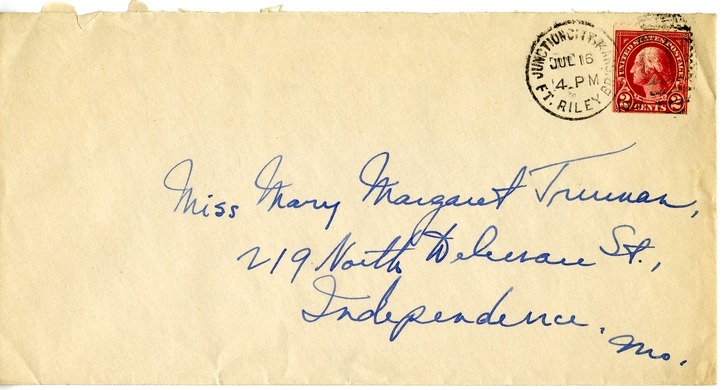 JUNCTION CITY, KANS.
JUL 16
4 PM
FT. RILEY BR.
UNITED STATES POSTAGE
2 CENTS 2
Miss Mary Margaret Truman,
219 North Delaware St.,
Independence,
Mo.